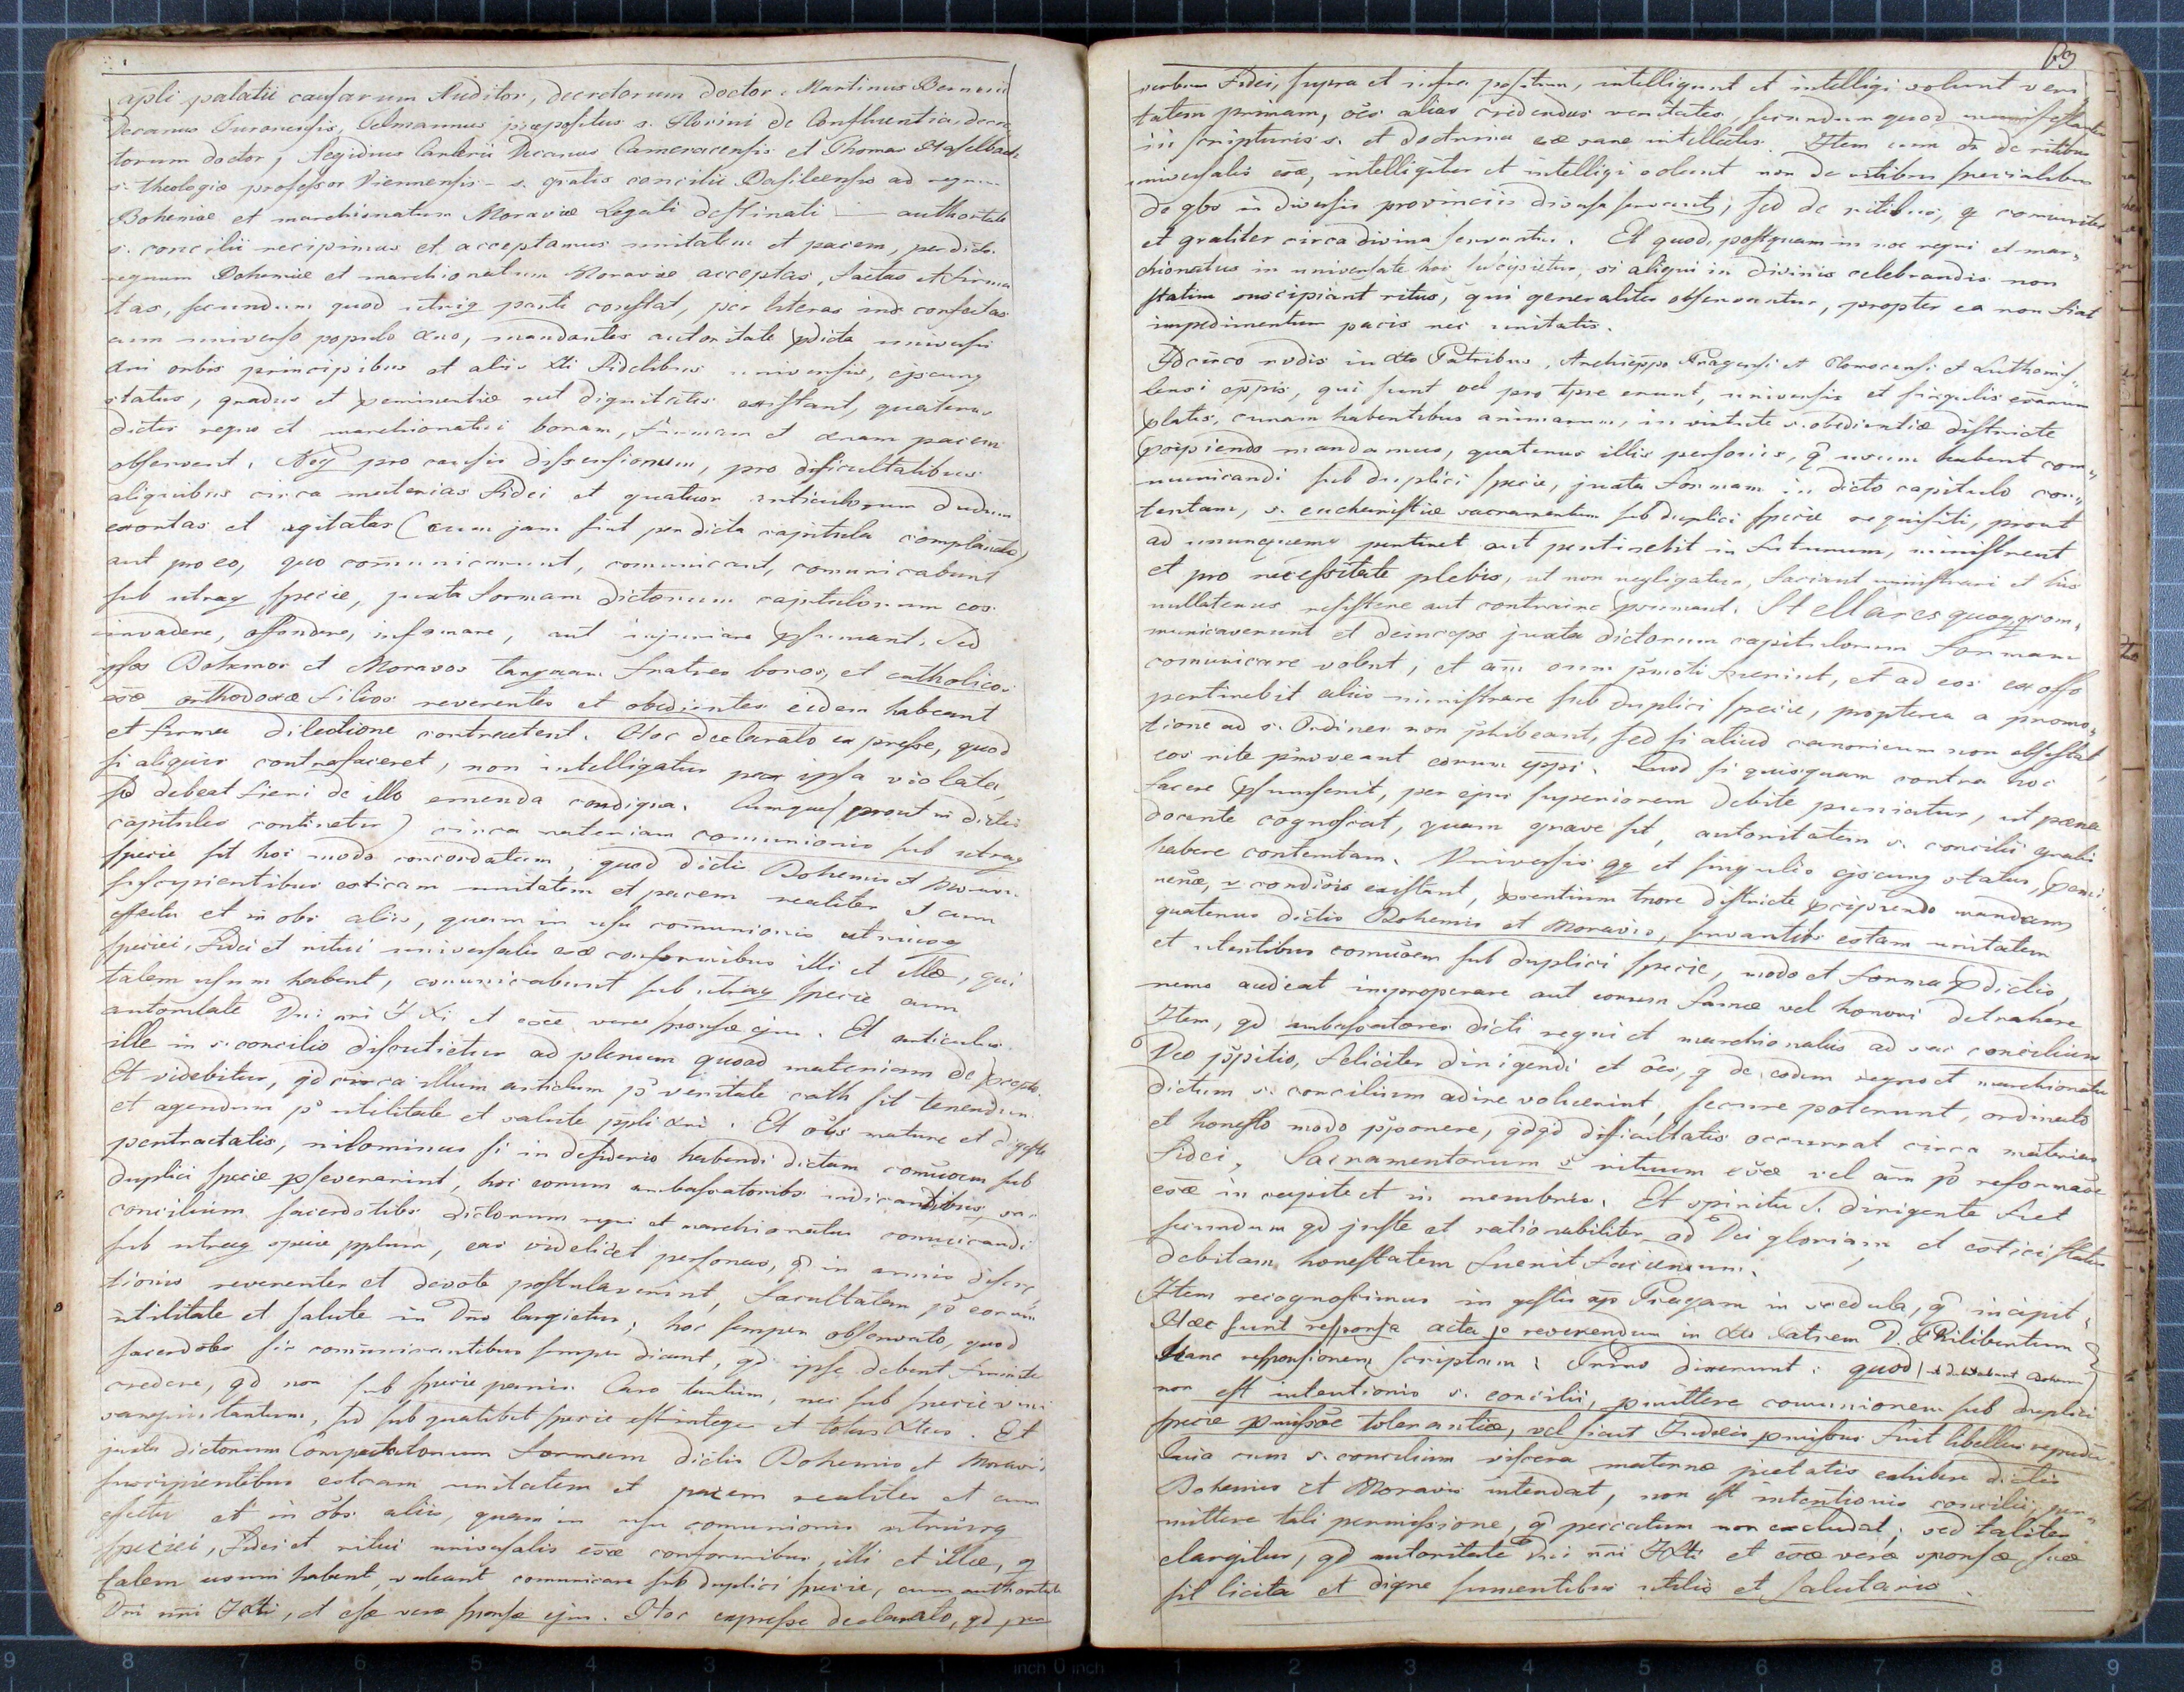 apli palatii causarum Auditor, decretorum doctor, Martinus Bernerii
Decanus Turonensis, Tilmannus praepositus s. Florini de Confluentia, decre
torum doctor, Aegidius Carlerii Decanus Cameracensis et Thomas Haselbach
s. theologiae professor Viennensis – s. gralis concilii Basileensis ad regnum
Bohemiae et marchionatum Moraviae Legati destinati – authoritate
s. concilii recipimus et acceptamus unitatem et pacem, per dictu
regnum Bohemiae et marchionatum Moraviae acceptas, factas et firma
tas, secundum quod utriq parti constat, per literas inde confectas
cum universo populo xno, mandantes autoritate pdicta universis
xni orbis principibus et aliis Xti fidelibus universis, cjscunq
status, gradus et peminentiae aut dignitatis existant, quatenus
dictis regno et marchionatui bonam, firmam et xnam pacem
observent. Neq pro causis dissensionum, pro dificultatibus
aliquibus circa materias fidei et quatuor articulorum dudum
exortas et agitatas (cum jam sint per dicta capitula complanata)
aut pro eo, quo communicarunt, comunicant, comunicabunt
sub utraq specie, juxta formam dictorum capitulorum eos
invadere, offendere, infamare, aut injuriare psumant. Sed
ipsos Bohemos et Moravos tanquam fratres bonos, et catholicos
ecae orthodoxae filios reverentes et obedientes eidem habeant
et firma dilectione contractent. Hoc declarato expresse, quod
si aliquis contrafaceret, non intelligatur pax ipsa violata,
sed debeat fieri de illo emenda condigna. Cumque (prout in dictis
capitulis continetur) circa materiam communionis sub utraq
specie sit hoc modo concordatum, quod dictis Bohemis et Moravis
suscipientibus ecticam unitatem et pacem realiter et cum
effectu et in obs aliis, quam in usu communionis utriusq
speciei, fidei et ritui universalis ecae conformibus illi et illae, qui
talem usum habent, comunicabunt sub utraq specie cum
autoritate Dni nri J Xi et ecae verae sponsae ejus. Et articulus
ille in s. concilio discutietur ad plenum quoad materiam de pcepto.
Et videbitur, qd circa illum articlum p veritate cath sit tenendum
et agendum p utilitate et salute ppli xni. Et obs mature et digeste
pertractatis, nilominus si in desiderio habendi dictam comuoem sub
duplici specie pseverarint, hoc eorum ambasiatoribs indicantibus, sac
concilium sacerdotibs dictorum regni et marchionatus comucicandi
sub utraq specie pplum, eas videlicet personas, q in annis discre
tionis reverenter et devote postulaverint, facultatem p eorum
utilitate et salute in Dno largietur; hoc semper observato, quod
sacerdotes sic comunicantibus semper dicant, qd ipse debent firmiter
credere, qd non sub specie panis Caro tantum, nec sub specie vini
sanguis tantum, sed sub qualibet specie est integer et totus Xtus. Et
juxta dictorum Compactatorum formam dictis Bohemis et Moravis
suscipientibus ectcam unitatem et pacem realiter et cum
effectu et in obs aliis, quam in usu comunionis utriusq
speciei, Fidei et ritui universalis ecae conformibus, illi et illae, q
talem usum habent, valeant comunicare sub duplici specie, cum authoritate
Dni nri JXti, et ecae verae sponsae ejus. Hoc expresse declarato, qd, per
verbum Fidei, supra et infra positum, intelligunt et intelligi volunt veri
tatem primam, oes alias credendas veritates, secundum quod manifestantur
in scripturis s. et doctrina ecae sane intellectis. Item cum dr de ritibus
universalis ecae, intelligitur et intelligi volunt non de ritibus specialibus
de qbs in diversis provinciis diversa servantur; sed de ritibus, q comuniter
et graliter circa divina servantur. Et quod, postquam in noe regni et mar„
chionatus in universitate hoc suscipietur, si aliqui in divinis celebrandis non
statim suscipiant ritus, qui generaliter observantur, propter ea non fiat
impedimentum pacis nec unitatis.
Idcirco rvdis in Xto Patribus, Archieppo Pragensi et Olomocensi et Luthomis„
lensi eppis, qui sunt vel pro tpre erunt, universis et singulis ecarum
platis, curam habentibus animarum, in virtute s. obedientiae districte
pcipiendo mandamus, quatenus illis personis, q usum habent com„
municandi sub duplici specie, juxta formam in dicto capitulo con„
tentam, s. eucharistiae sacramentum sub duplici specie requisiti, prout
ad unumquemq pertinet aut pertinebit in futurum, ministrent
et pro necessitate plebis, ut non negligatur, faciant ministrari et his
nullatenus resistere aut contraire psumant. Stellares quoq qcom„
municaverunt et deinceps juxta dictorum capitulorum formam
comunicare volent, et am cum pmoti fuerint, et ad eos ex offo
pertinebit aliis ministrare sub duplici specie, propterea a promo„
tione ad s. Ordines non phibeant, sed si aliud canonicum non obsistat,
eos rite pmoveant eorum eppi. Quod si quisquam contra hoc
facere psumserit, per ejus superiorem debite puniatur, ut poena
docente cognoscat, quam grave sit, autoritatem s. concilii gralis
habere contemtam. Universis qq et singulis cjscunq status, pemi„
nenae, v condiois existant, psentium tnore districte pcipiendo mandam
quatenus dictis Bohemis et Moravis, servantibs ectam unitatem
et utentibus comuoem sub duplici specie, modo et forma pdictis,
nemo audeat improperare aut eorum famae vel honori detrahere
Item, qd ambasiatores dicti regni et marchionatus ad sac concilium
Deo ppitio, feliciter dirigendi et oes, q de eodem regno et marchionatu
dictum s. concilium adire voluerint, secure poterunt, ordinato
et honesto modo pponere, qdqd dificultatis occurrat circa materias
fidei, Sacramentorum v rituum ecae vel am p reformaoe
ecae in capite et in membris. Et spiritu S. dirigente fiet
secundum qd juste et rationabiliter ad Dei gloriam, et ectici status
debitam honestatem fuerit faciendum.
Item recognoscimus in gestis ap Pragam in scedula, q incipit:
Haec sunt responsa acta p reverendum in Xto Patrem D. Philibertum
hanc responsionem scriptam: Primo dixerunt: quod
non est intentionis s. concilii, pmittere comunionem sub duplici
specie pmissoe tolerantiae, vel sicut Judaeis pmissus fuit libellus repudii.
Quia cum s. concilium viscera maternae pietatis exhibere dictis
Bohemis et Moravis intendat, non est intentionis concilii, per„
mittere tali permissione, q peccatum non excludat; sed taliter
elargitur, qd autoritate Dni nri JXti et ecae verae sponsae suae
sit licita et digne sumentibus utilis et salutaris.